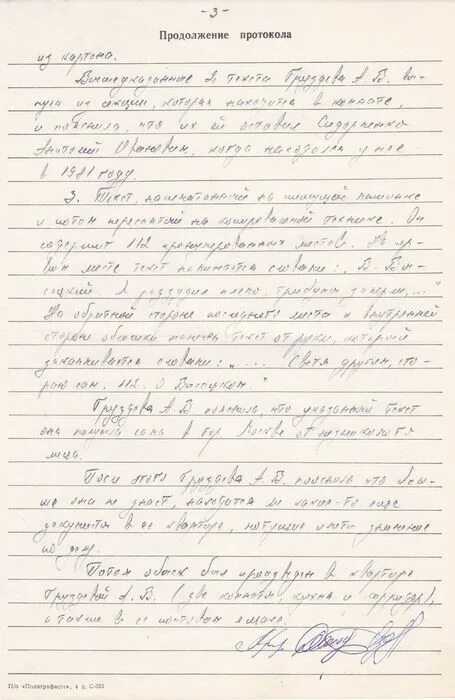 - 3 -
Продолжение протокола
из картона.
Вышеуказанные 2 текста Груздева А.В. вы-
нула из секции, которая находится в комнате,
и пояснила, что их ей оставил Сидоренко
Анатолий Иванович, когда находился у нее
в 1981 году.
3. Текст, напечатанный на пишущей машинке
и потом переснятый на копировальной технике. Он
содержит 112 пронумерованных листов. На пер-
вом листе текст начинается словами: „В. Вы-
соцкий. Я раздвудил плечо, трибуны замерли,..."
На обратной стороне последнего листа и внутренней
стороне обложки нанесен текст от руки, который
заканчивается словами: „.... Светя другим, сго-
раю сам. 112. О Высоцком"
Груздева А.В. пояснила, что указанный текст
она получила сама в гор. Москве от
лица.
После этого Груздева А.В. пояснила что боль-
ше она не знает, находятся ли какие-то еще
документы в ее квартире, могущие иметь значение
по делу.
Потом обыск был произведен в квартире
Груздевой А.В. (две комнаты, кухня и коридор),
а также в ее почтовом ящике.
П/о «Полиграфист», 4 л. С-333